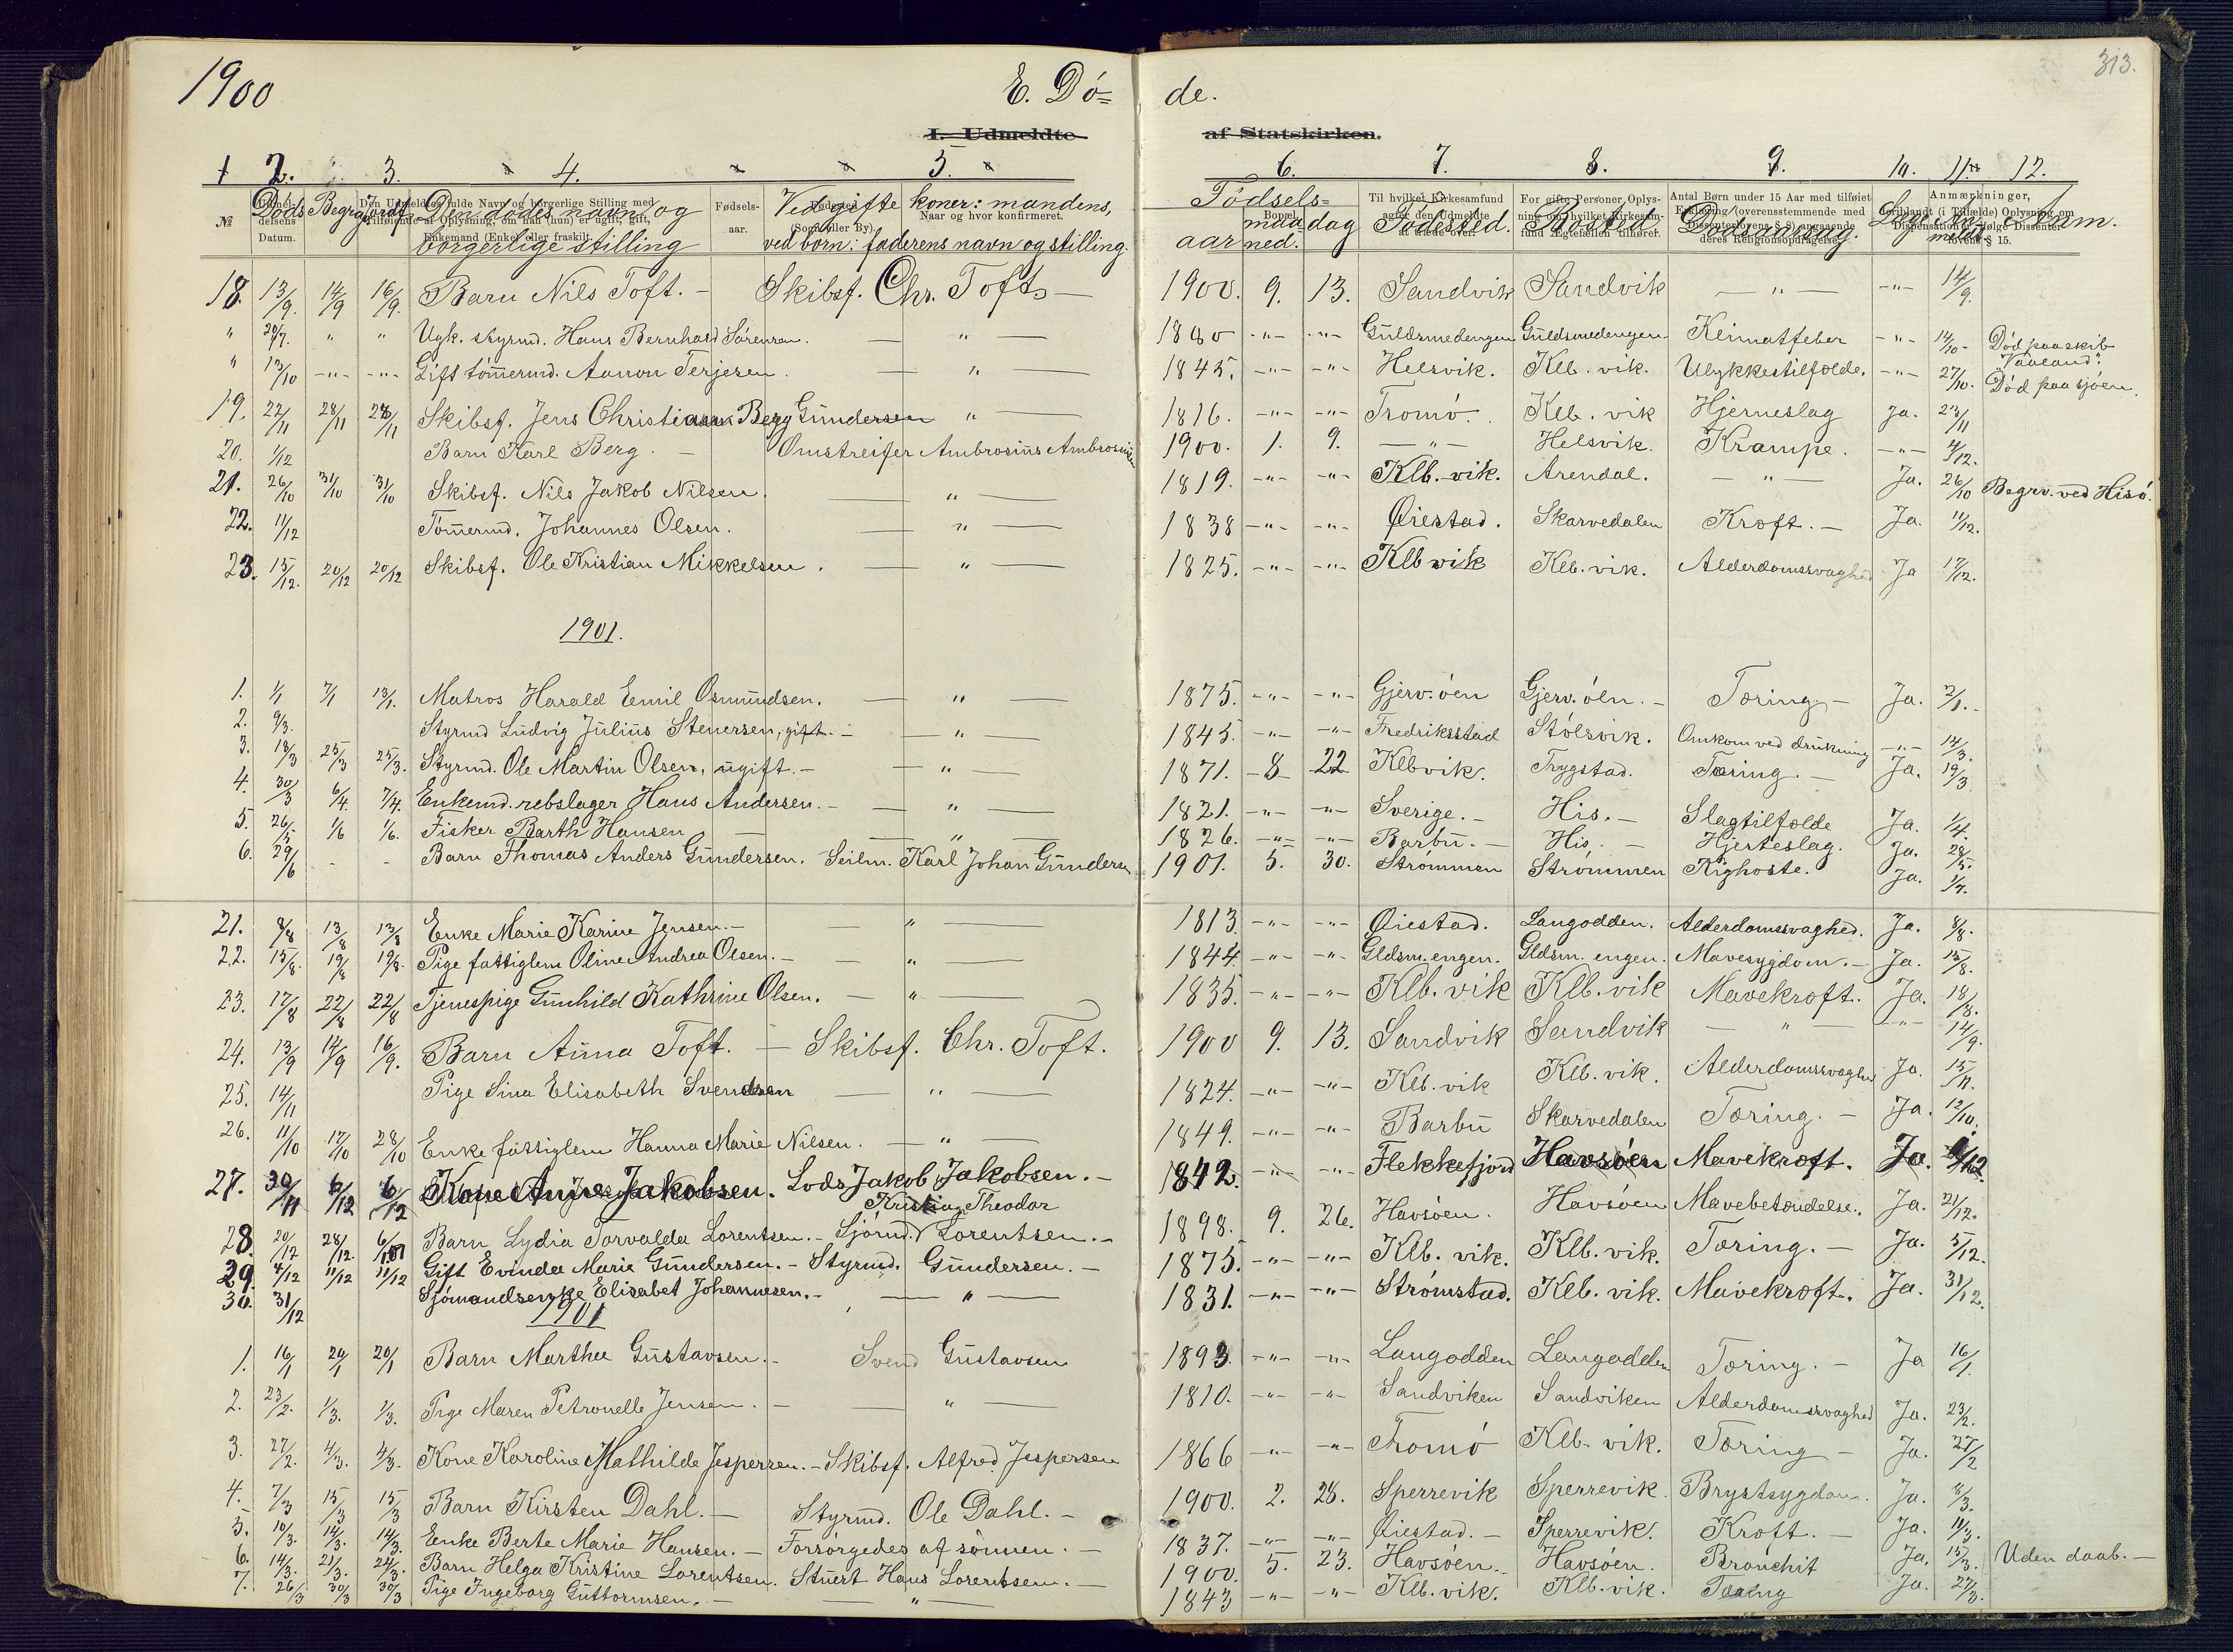 313.
1900 E. Dö= de.
I. Udmeldte af Statskirken.
1 2. 3. 4. 5. 6. 7. 8. 9. 10. 11. 12.
№ Døds Begr. Jordf. Den dødes navn og borgerlige stilling Ved gifte koner: mandens, ved børn: faderens navn og stilling. Fødsels- aar maaned. dag Fødested. Bosted Dødsaarsag. Læge Anmeldt Anm.
Datum. Fødsels-aar. Naar og hvor konfirmeret.
18. 13/9. 14/9 16/9. Barn Nils Toft. – Skibsf. Chr. Toft. – 1900. 9. 13. Sandvik Sandvik — " — -"- 14/9.
" 20/7. " " Ugk. styrmd. Hans Bernhard Sørensen. — " — 1880 -"- -"- Guldsmedengen Guldsmedengen Klimatfeber -"- 14/10- Död paa skib "Vaaland".
" 13/10 -"- -"- Gift tömmermd. Aanon Terjesen. — " — 1845. -"- -"- Helsvik. Klb. vik. Ulykkestilfælde. -"- 27/10. Död paa sjöen.
19. 22/11 28/11 28/11 Skibsf. Jens Christian Berg Gundersen " — 1816. -"- -"- Tromö. Klb. vik Hjerneslag Ja. 23/11
20. 1/12 Barn Karl Berg. – Omstreifer Ambrosius Ambrosiusen 1900. 1. 9. — " — Helsvik. Krampe. -"- 4/12.
21. 26/10 31/10 31/10 Skibsf. Nils Jakob Nilsen. — " — 1819. -"- -"- Klb.-vik. Arendal. — " — Ja. 26/10 Begrv. ved Hisö.
22. 11/12 Tömmermd. Johannes Olsen. — " — 1838 -"- -"- Öiestad. Skarvedalen Kræft. – Ja. 11/12.
23. 15/12. 20/12 20/12 Skibsf. Ole Kristian Mikkelsen. — " — 1825. -"- -"- Klb vik Klb. vik. Alderdomssvaghed Ja 17/12.
1901.
1. 1/1 7/1 13/1. Matros Harald Emil Osmundsen. — " — 1875. -"- -"- Gjerv. öen Gjerv. öen. – Tæring. – Ja. 2/1. –
2. 9/3. Styrmd Ludvig Julius Stenersen, gift. – — " — 1845. -"- -"- Fredriksstad Stölsvik. Omkom ved drukning -"- 14/3.
3. 18/3 25/3 25/3. Styrmd. Ole Martin Olsen, ugift. – — " — 1871. – 8 22 Klbvik. Trygstad. Tæring. – Ja. 19/3
4. 30/3 6/4. 7/4. Enkemd. rebslager Hans Andersen. – — " — 1821. -"- -"- Sverige. – His. – Slagtilfælde Ja. 1/4.
5. 26/5 1/6 1/6. Fisker Barth Hansen — — " — 1826. -"- -"- Barbu. – His. – Hjerteslag. Ja. 28/5.
6. 29/6 - - Barn Thomas Anders Gundersen. Seilm. Karl Johan Gundersen 1901. 5. 30. Strömmen Strömmen Kighoste. Ja. 1/7.
21. 8/8 13/8 13/8 Enke Marie Karine Jensen. – — " — 1813. -"- -"- Öiestad. Langodden. Alderdomssvaghed. Ja. 8/8.
22. 15/8. 19/8 19/8. Pige fattiglem Oline Andrea Olsen. – — " — 1844. -"- -"- Gldsm. engen. Gldsm. engen. Mavesygdom. – Ja. 15/8.
23. 17/8 22/8 22/8 Tjenespige Gunhild Kathrine Olsen. — " — 1835. -"- -"- Klb. vik Klb. vik Mavekræft. Ja. 18/8.
24. 13/9 14/9 16/9. Barn Anna Toft. – Skibsf. Chr. Toft. 1900 9. 13. Sandvik Sandvik — " — -"- 14/9.
25. 14/11 Pige Sina Elisabeth Svendsen — " — 1824. -"- -"- Klb. vik Klb. vik. Alderdomssvaghed Ja. 15/11.
26. 11/10 17/10 28/10 Enke fattiglem Hanna Marie Nilsen. — " — 1849. -"- -"- Barbu Skarvedalen Tæring. – Ja. 12/10.
27. 30/11 6/12 6/12 Kone Anne Jakobsen. Lods Jakob Jakobsen. – 1842. -"- -"- Flekkefjord Havsöen Mavekræft. Ja. /12.
Kristian Theodor
28. 20/12 28/12. 6/1.01 Barn Lydia Torvalda Lorentsen. – Sjömd. Lorentsen. – 1898. 9. 26. Havsöen. Havsöen Mavebetændelse. Ja. 21/12.
29. 4/12 11/12 11/12 Gift Evinda Marie Gundersen. – Styrmd. Gundersen. – 1875. -"- -"- Klb. vik. Klb. vik. Tæring. – Ja. 5/12.
30. 31/12 Sjömandsenke Elisabet Johannesen. – — " — 1831. -"- -"- Strömstad. Klb. vik. Mavekræft. Ja. 31/12.
1901
1. 16/1 20/1 20/1 Barn Marthe Gustavsen. – Svend Gustavsen 1893. -"- -"- Langodden Langodden Tæring. – Ja 16/1.
2. 23/2. 1/3. 1/3. Pige Maren Petronelle Jensen. – — " — 1810. -"- -"- Sandviken Sandviken Alderdomssvaghed Ja. 23/2.
3. 27/2. 4/3. 4/3. Kone Karoline Mathilde Jespersen. – Skibsf. Alfred Jespersen 1866 -"- -"- Tromö Klb. vik. Tæring – Ja. 27/2
4. 7/3 15/3 15/3 Barn Kirsten Dahl. – Styrmd. Ole Dahl. – 1900. 2. 28. Sperrevik Sperrevik. Brystsygdom. Ja. 8/3.
5. 10/3. 14/3. 14/3. Enke Berte Marie Hansen. – Forsörgedes af sönnen. – 1837. -"- -"- Öiestad. – Sperrevik. Kræft. – Ja. 11/3.
6. 14/3. 21/3. 21/3. Barn Helga Kristine Lorentsen. Stuert Hans Lorentsen. – 1900. 5. 23. Havsöen. Havsöen. Bronchit Ja. 15/3. Uden daab. –
7. 26/3 30/3 30/3 Pige Ingeborg Guttormsen. – — " — 1843 -"- -"- Klb. vik. Klb. vik. Tæring Ja. 27/3.